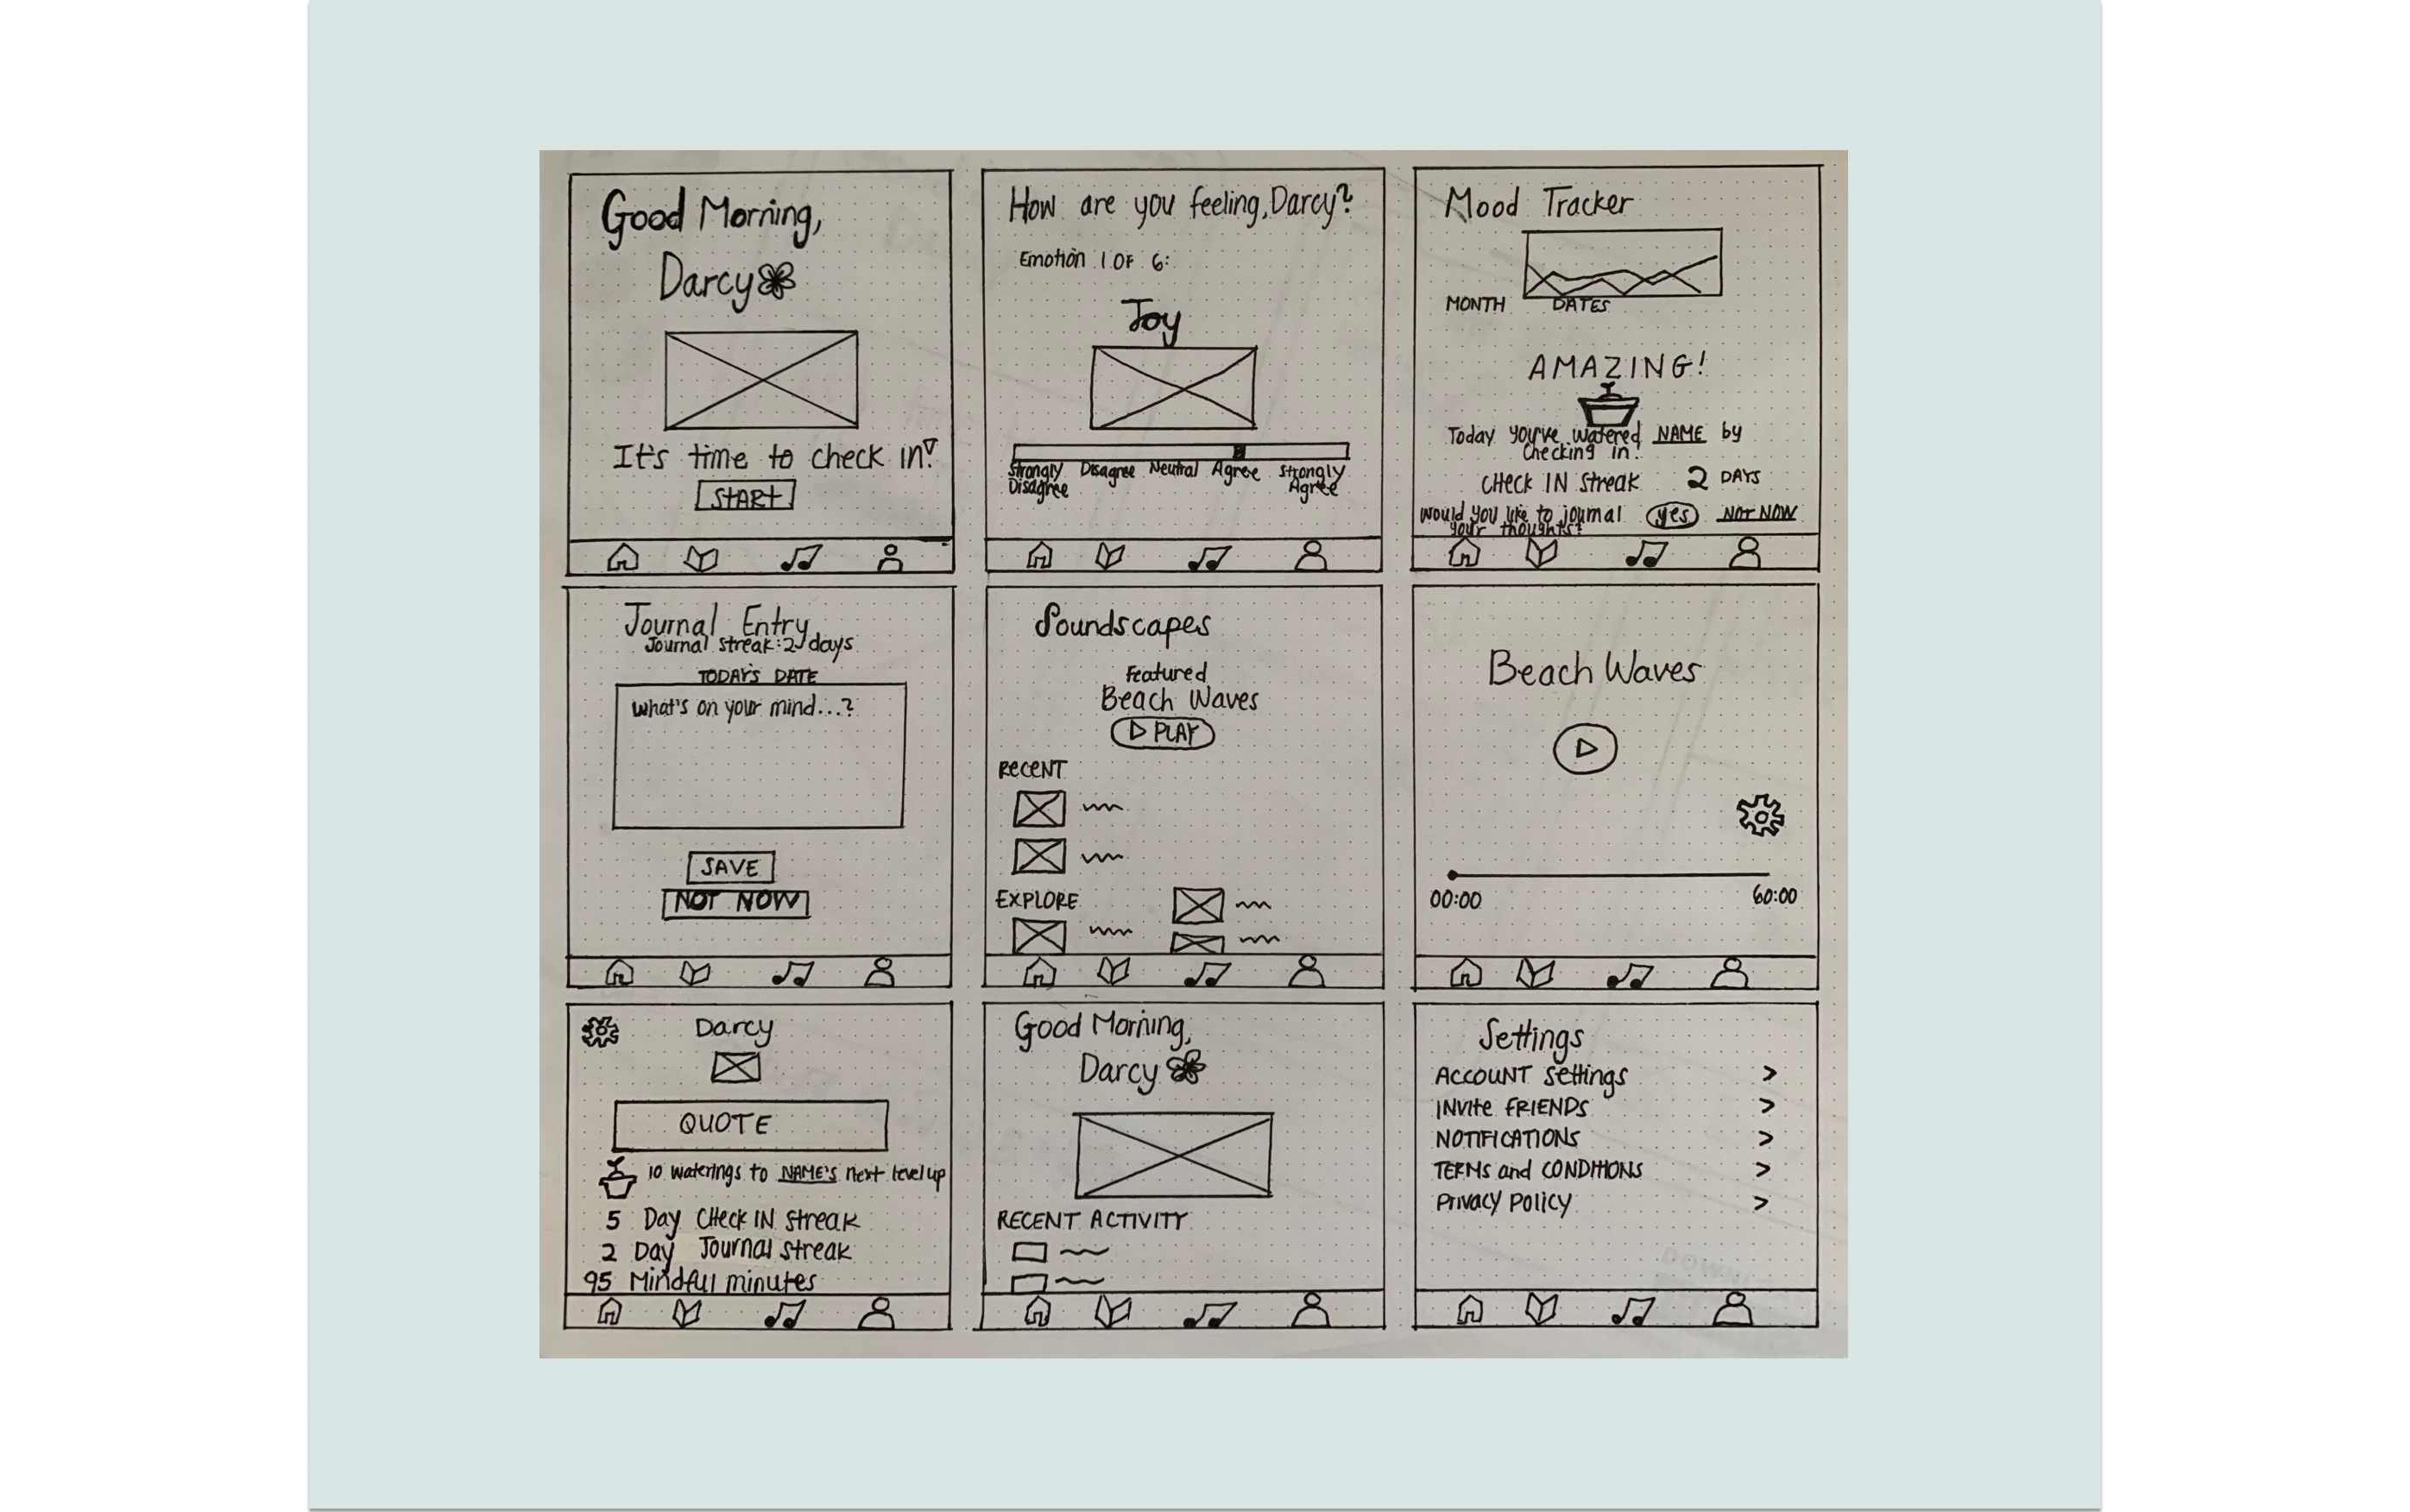 Good Morning,
Darcy
It's time to check in!
START
How are you feeling, Darcy?
Emotion 1 OF 6:
Joy
Strongly Disagree Disagree Neutral Agree Strongly Agree
Mood Tracker
MONTH DATES
AMAZING!
Today you've watered NAME by
Checking in!
CHeck IN streak 2 DAYS
would you like to journal yes NOT NOW
your thoughts?
Journal Entry
Journal streak: 2 days
TODAY'S DATE
what's on your mind...?
SAVE
NOT NOW
Soundscapes
featured
Beach Waves
PLAY
ReCeNT
EXPLORE
Beach Waves
00:00 60:00
Darcy
QUOTE
10 waterings to NAME's next level up
5 Day CHeck IN streak
2 Day Journal streak
95 Mindful minutes
Good Morning,
Darcy
RECENT ACTIVITY
Settings
ACCOUNT settings >
INVite FRIENDS >
NOTIFICATIONS >
TERMs and CONDITIONS >
Privacy Policy >